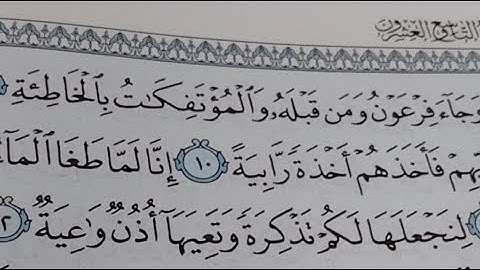 التاسع والعشرون
وَجَآءَ فِرْعَوْنُ وَمَن قَبْلَهُۥ وَٱلْمُؤْتَفِكَٰتُ بِٱلْخَاطِئَةِ
فَأَخَذَهُمْ أَخْذَةً رَّابِيَةً ١٠ إِنَّا لَمَّا طَغَا ٱلْمَآءُ
لِنَجْعَلَهَا لَكُمْ تَذْكِرَةً وَتَعِيَهَآ أُذُنٌ وَٰعِيَةٌ